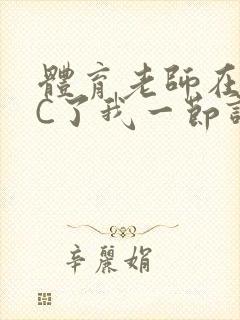 體育老師在
C了我一節
辛麗娟